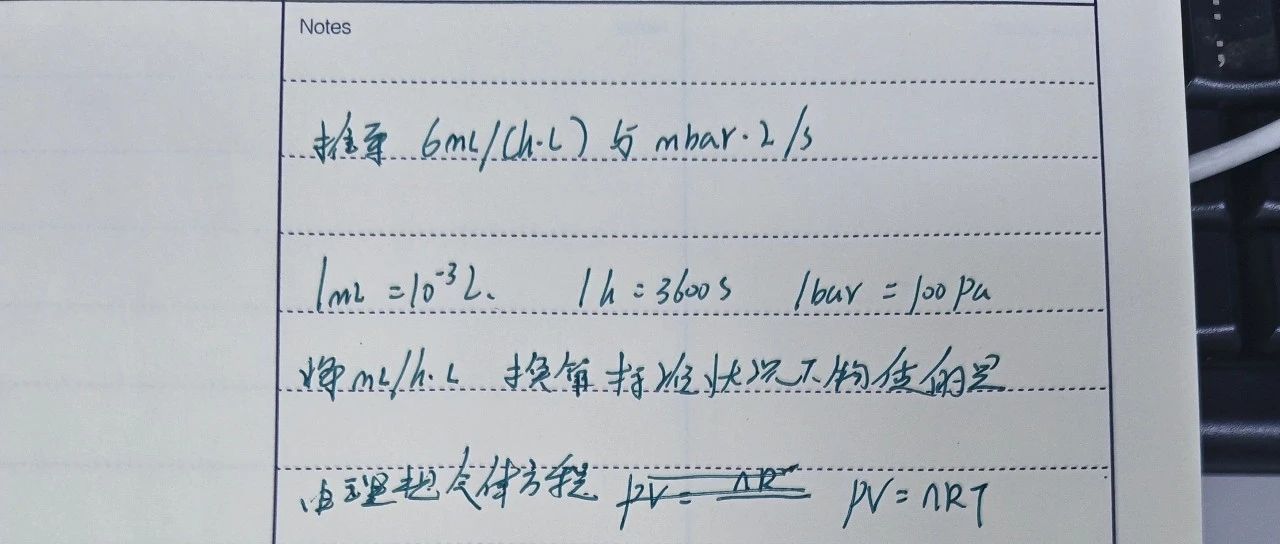 Notes
推导 6mL/(h·L) 与 mbar·L/s
1mL = 10⁻³L. 1h = 3600s 1bar = 100Pa
将mL/h·L 换算标准状况下物质的量
由理想气体方程 PV = nR PV = nRT